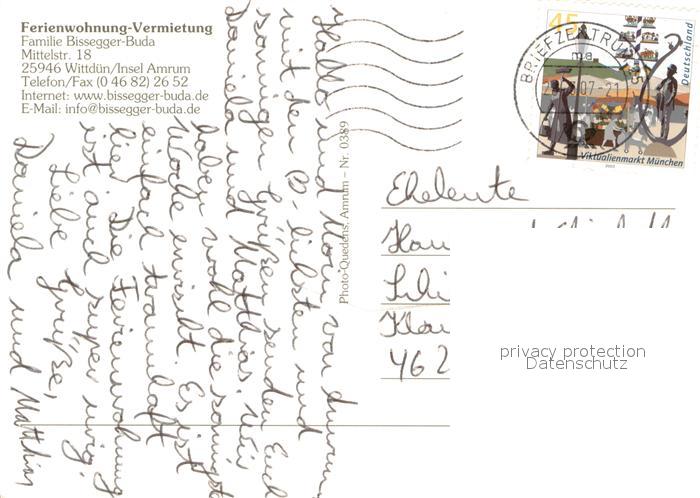 Ferienwohnung-Vermietung
Familie Bissegger-Buda
Mittelstr. 18
25946 Wittdün/Insel Amrum
Telefon/Fax (0 46 82) 26 52
Internet: www.bissegger-buda.de
E-Mail: info@bissegger-buda.de
Hallo und Moin von Amrum
mit den lichsten und
sonnigen Grüßen senden Euch
Daniela und Matthias. Wir
haben wohl die sonnigste
Woche erwischt. Es ist
einfach traumhaft
hier. Die Ferienwohnung
ist auch super urig.
Liebe Grüße,
Daniela und Matthias
Photo-Quedens, Amrum – Nr. 0389
45
Deutschland
Viktualienmarkt München
BRIEFZENTRUM
Eheleute
462
privacy protection
Datenschutz